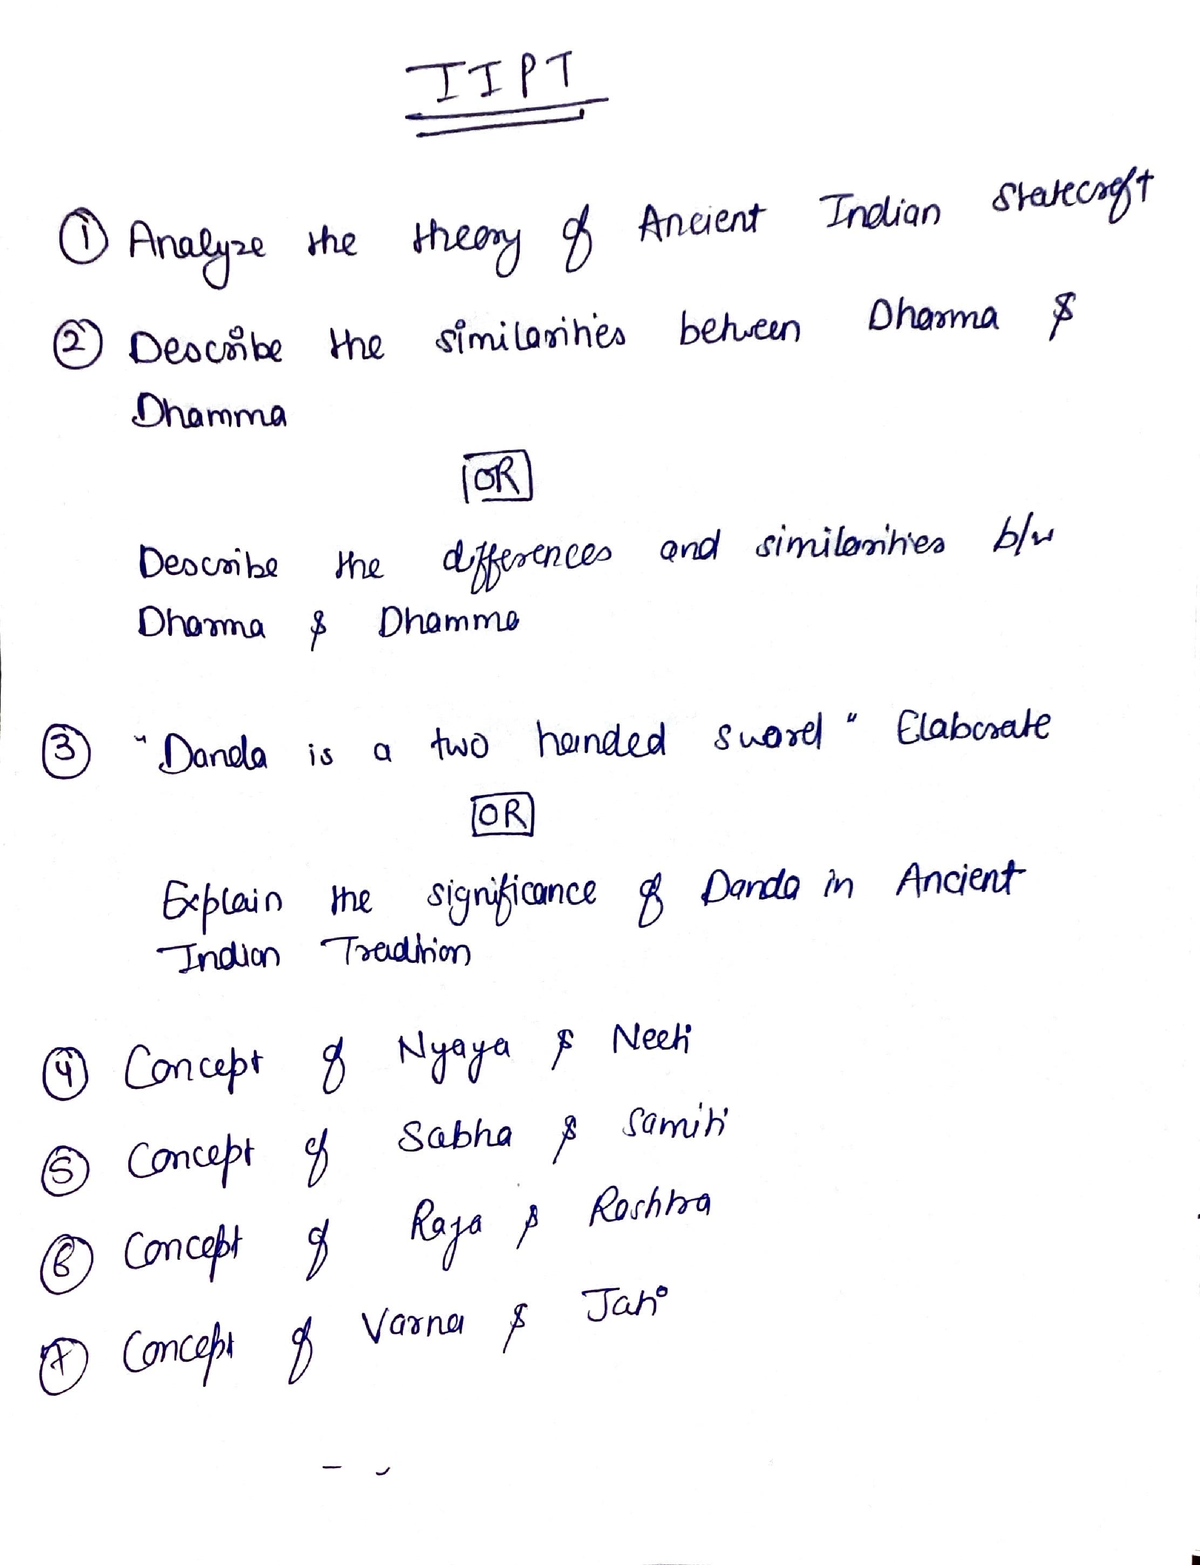 IIPT
① Analyze the theory of Ancient Indian Statecraft
② Describe the similarities between Dharma &
Dhamma
OR
Describe the differences and similarities b/w
Dharma & Dhamma
③ "Danda is a two handed sword" Elaborate
OR
Explain the significance of Danda in Ancient
Indian Tradition
④ Concept of Nyaya & Neeti
⑤ Concept of Sabha & Samiti
⑥ Concept of Raja & Rashtra
⑦ Concept of Varna & Jati